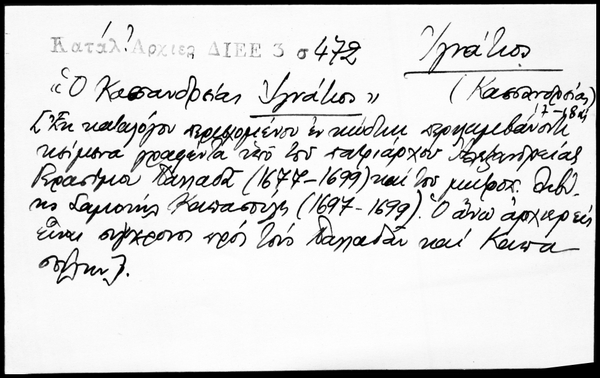 Κατάλ. Ἀρχιερ. ΔΙΕΕ 3 σ 472
Ἰγνάτιος
(Κασσανδρείας)
17-18 αἰ
«Ὁ Κασανδρείας Ἰγνάτιος»
[Ἐκ καταλόγου περιεχομένου ἐν κώδικι περιλαμβάνοντι
κείμενα γραφέντα ὑπό τοῦ πατριάρχου Ἀλεξανδρείας
Γερασίμου Παλλαδᾶ (1677-1699) καί τοῦ μητροπ. Λιβύ-
ης Σαμουήλ Καπασούλη (1697-1699). Ὁ ἄνω ἀρχιερεύς
εἶναι σύγχρονος πρός τούς Παλλαδᾶν καί Καπα-
σούλην].